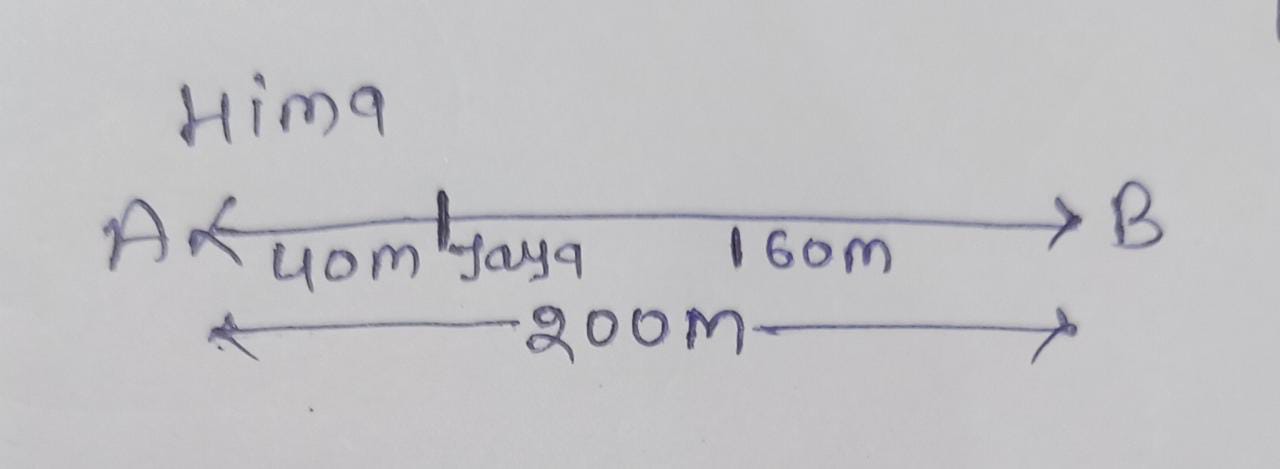 Hima
A B
40m Jaya 160m
200m